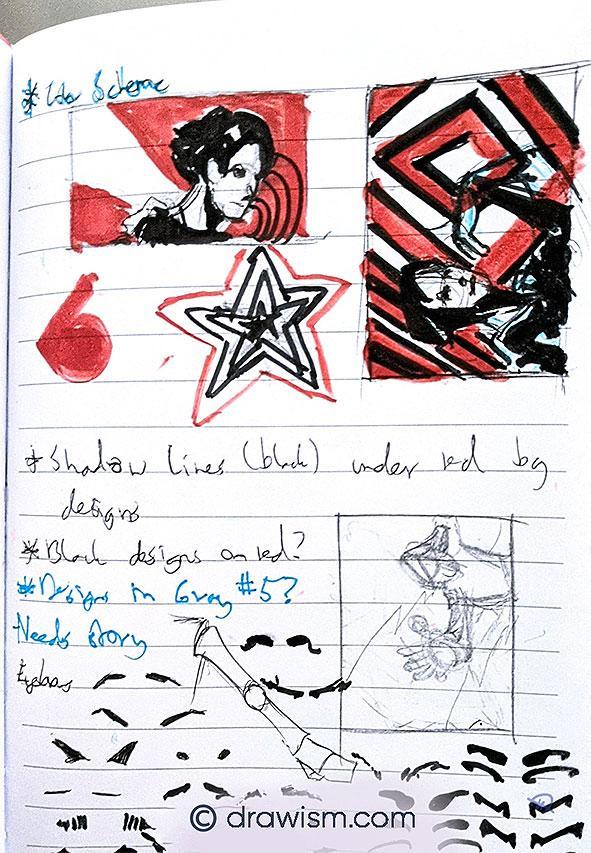 *
6
* Shadow lines (black) under red bg
designs
* Black designs on red?
* Designs in Gray #5?
Needs story
© drawism.com